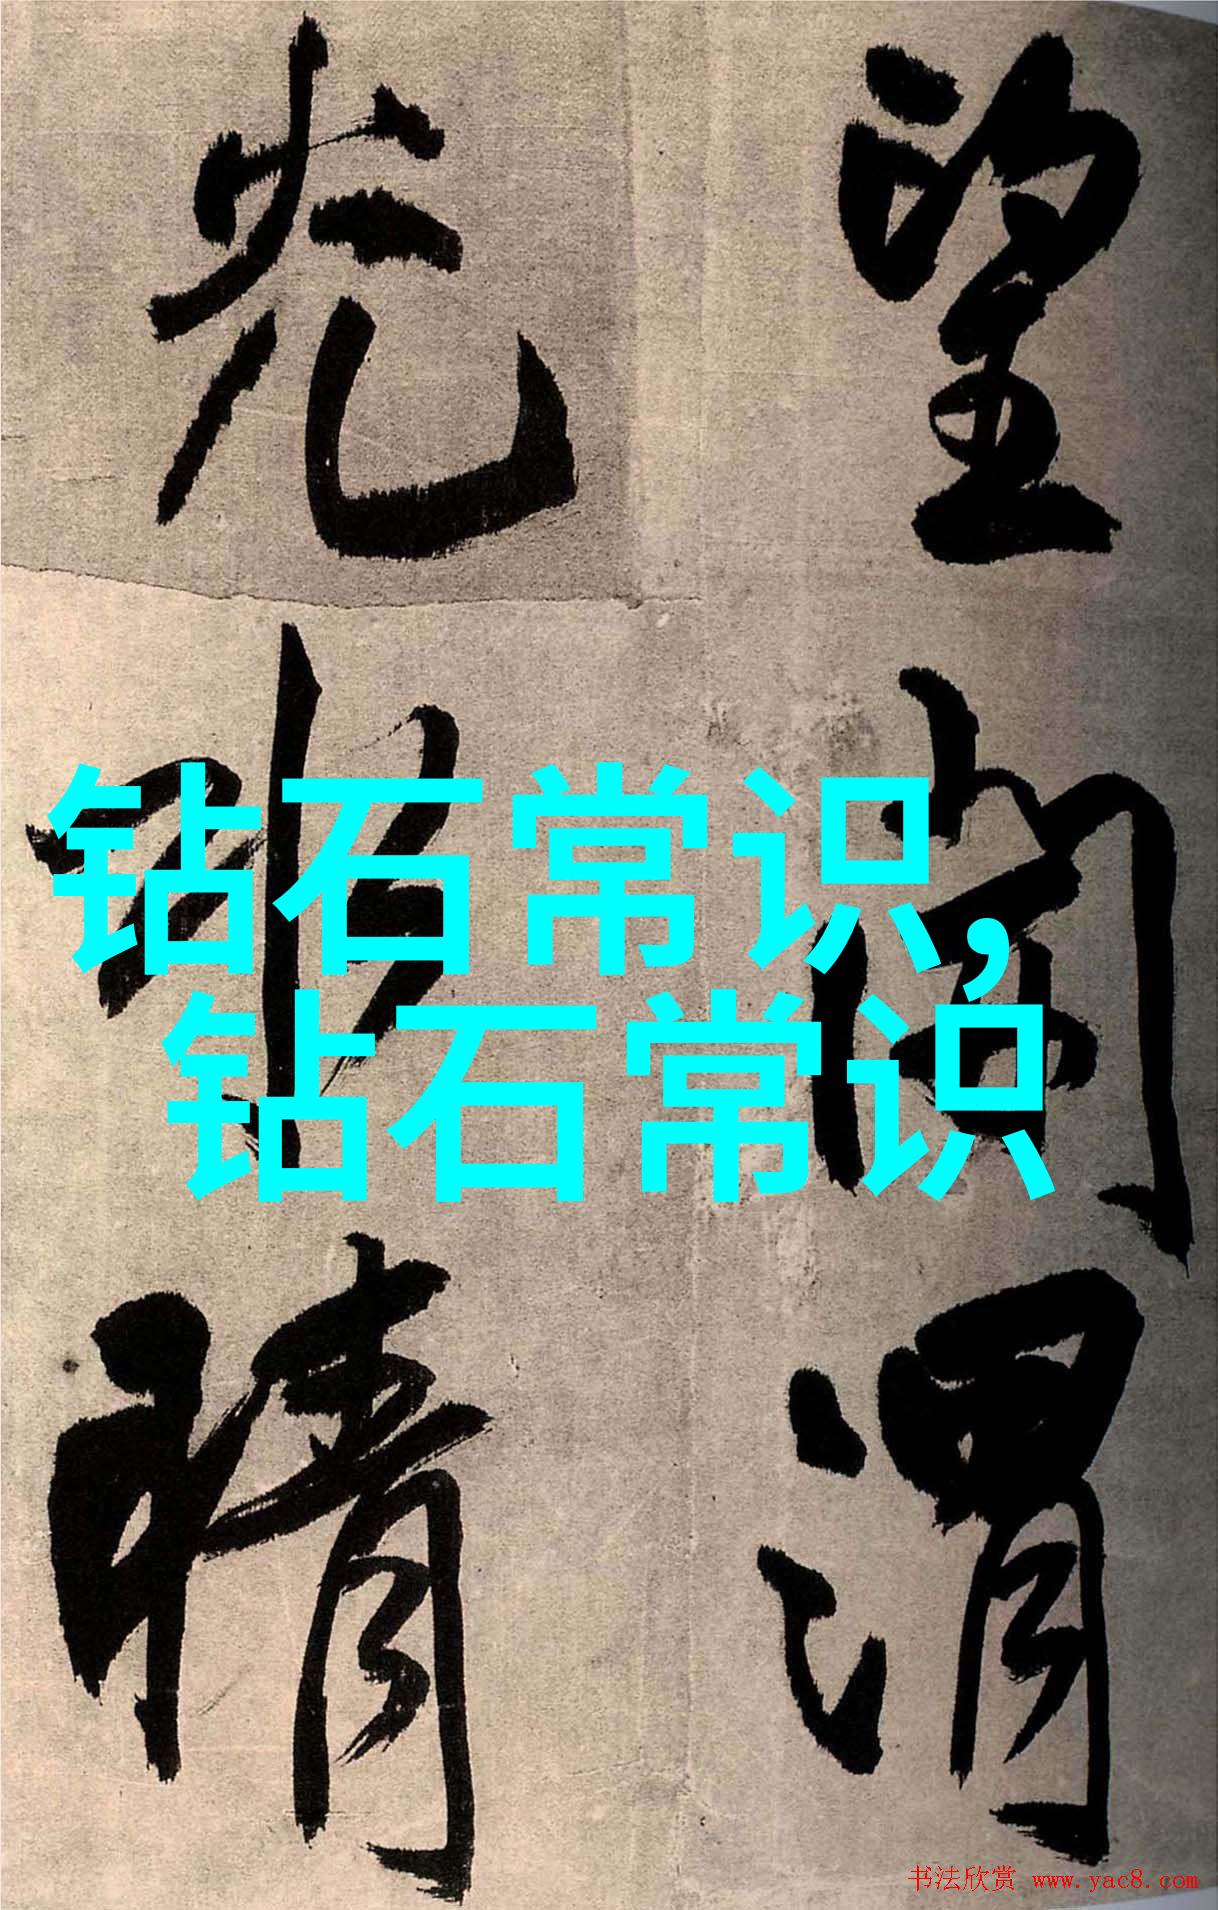 望
渭
光
晴
钻石常识,
钻石常识
书法欣赏 www.yac8.com